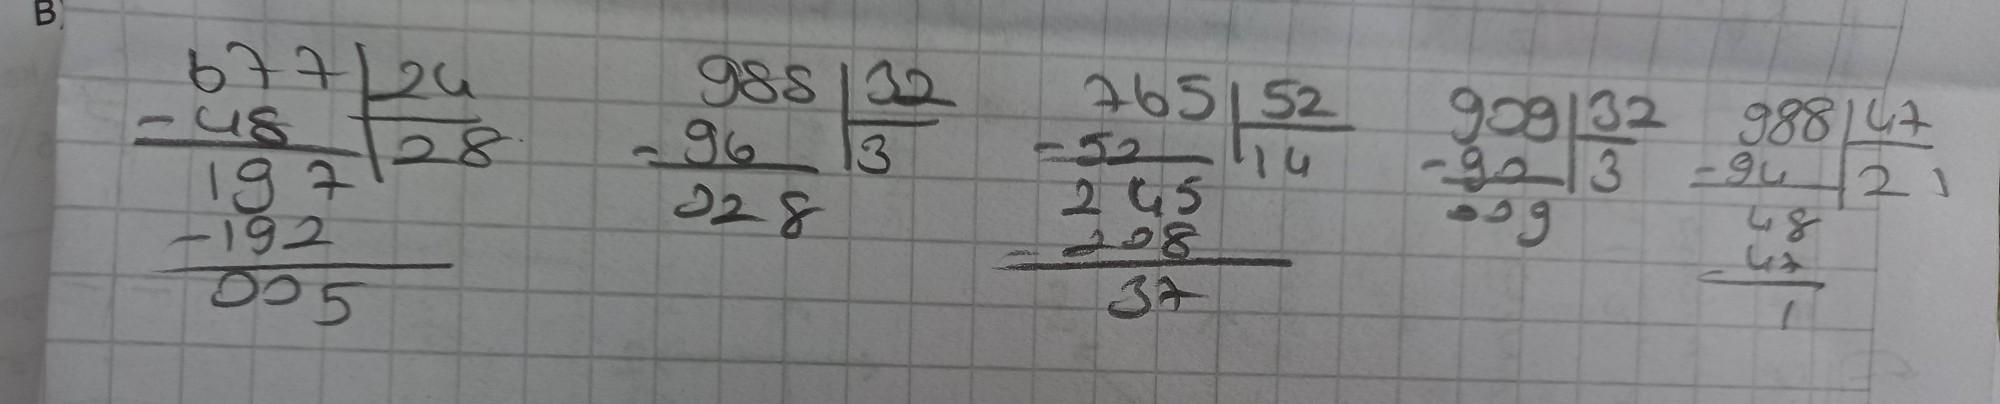 B)
677 | 24
- 48 | 28
197
- 192
005
988 | 32
- 96 | 3
028
765 | 52
- 52 | 14
245
- 208
37
909 | 32
- 90 | 3
009
988 | 47
- 94 | 21
48
- 47
1